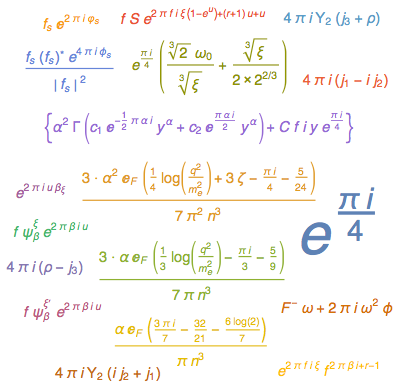 f_s e^{2 π i φ_s}
f S e^{2 π f i ξ (1-e^u)+(r+1) u+u}
4 π i Y_2 (j_3 + ρ)
\frac{f_s (f_s)^* e^{4 π i ϕ_s}}{| f_s |^2}
e^{\frac{π i}{4}} \left( \frac{\sqrt[3]{2} ω_0}{\sqrt[3]{ξ}} + \frac{\sqrt[3]{ξ}}{2 × 2^{2/3}} \right)
4 π i (j_1 - i j_2)
{α^2 Γ (c_1 e^{-\frac{1}{2} π α i} y^α + c_2 e^{\frac{π α i}{2}} y^α) + C f i y e^{\frac{π i}{4}}}
e^{2 π i u β_ξ}
\frac{3 · α^2 e_F \left( \frac{1}{4} log(\frac{q^2}{m_e^2}) + 3 ζ - \frac{π i}{4} - \frac{5}{24} \right)}{7 π^2 n^3}
e^{\frac{π i}{4}}
f ψ_β^ξ e^{2 π β i u}
4 π i (ρ - j_3)
\frac{3 · α e_F \left( \frac{1}{3} log(\frac{q^2}{m_e^2}) - \frac{π i}{3} - \frac{5}{9} \right)}{7 π n^3}
f ψ_β^{ξ'} e^{2 π β i u}
F^- ω + 2 π i ω^2 ϕ
\frac{α e_F \left( \frac{3 π i}{7} - \frac{32}{21} - \frac{6 log(2)}{7} \right)}{π n^3}
4 π i Y_2 (i j_2 + j_1)
e^{2 π f i ξ} f^{2 π β i+r-1}